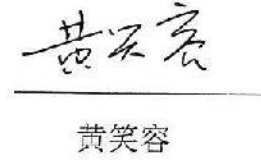 黄笑容
黄笑容